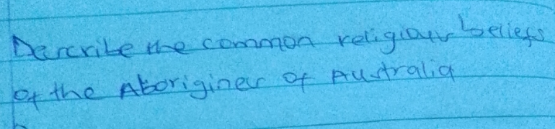 Describe the common religious beliefs
of the Aborigines of Australia